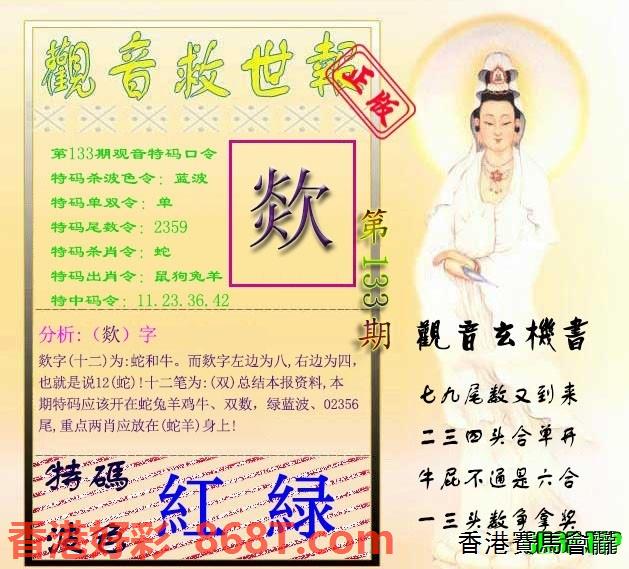 觀音救世報
正版
第133期观音特码口令
特码杀波色令: 蓝波
特码单双令: 单
特码尾数令: 2359
特码杀肖令: 蛇
特码出肖令: 鼠狗兔羊
特中码令: 11.23.36.42
欻
第133期
分析:（欻）字
欻字(十二)为:蛇和牛。而欻字左边为八,右边为四,
也就是说12(蛇)!十二笔为:(双)总结本报资料,本
期特码应该开在蛇兔羊鸡牛、双数，绿蓝波、02356
尾,重点两肖应放在(蛇羊)身上!
觀音玄機書
七九尾数又到来
二三四头合单开
牛屁不通是六合
一三头数争拿奖
特碼
波色
紅 绿
香港好彩 868T.com
香港賽馬會